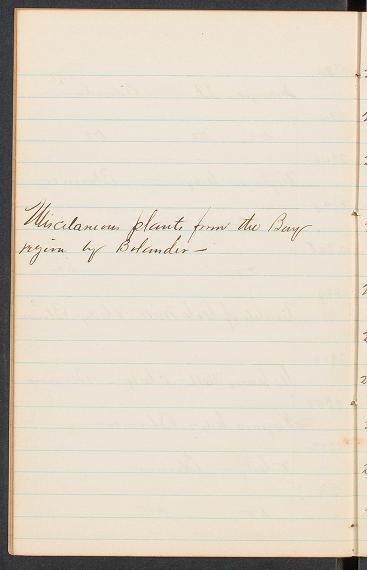 Miscelaneous plants from the Bay
region by Bolander —